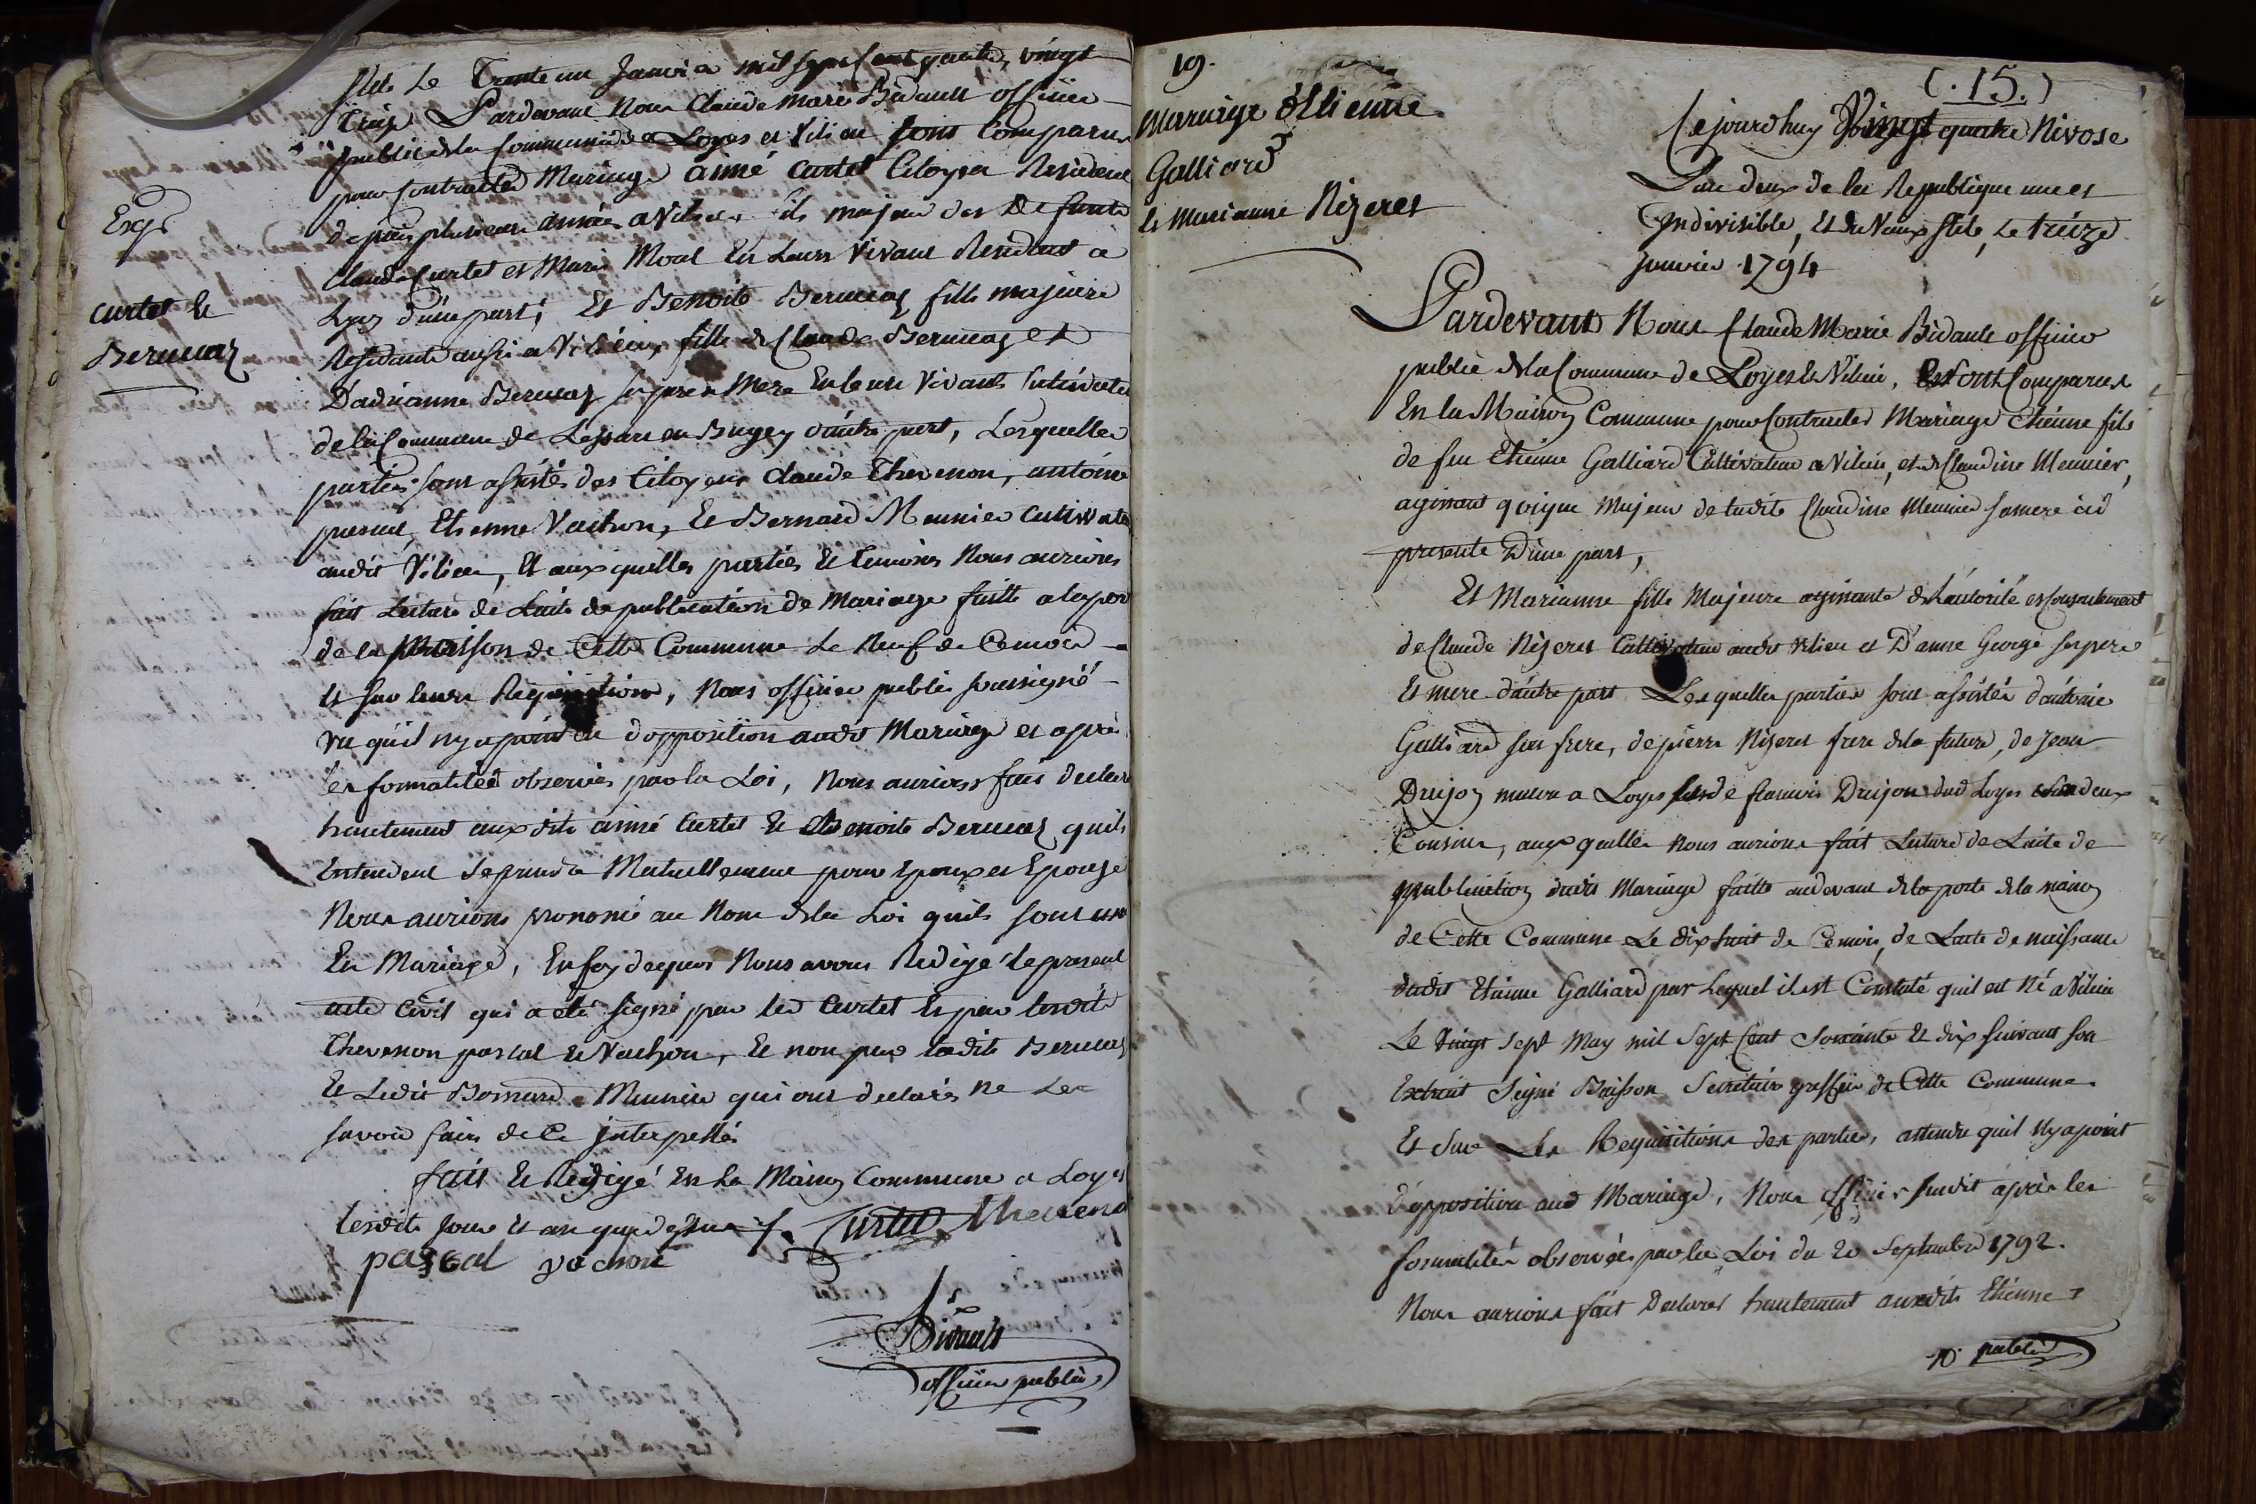 Stile Le Trente un Janvier mil sept Cent quatre, vingt
Treize Pardevant Nous Claude Marie Bidault officier
public de la Commune de Loyes et Vilieu sont Comparus
pour Contracter Mariage aimé Curtet Citoyen Resident
depuis plusieurs années a Vilieu fils majeur des Defunts
Claude Curtet et Marie Moal En Leurs Vivant Residents a
d'une part; Et Benoite Bermeaz fille majeure
Residante aussi a Vilieu, fille de Claude Bermeaz et
D'adrianne Bermeaz ses pere & Mere En leurs Vivants Cultivateurs
de la Commune de en Bugey d'autre part, Lesquelles
parties sont assistés des Citoyens Claude Thevenon, antoine
pascal, Etienne Vachon, Et Bernard Meunier Cultivateurs
audit Vilieu, Et auxquelles parties Et temoins Nous aurions
fait Lecture de Lacte de publication de Mariage faitte a la porte
de la Maison de Cette Commune Le Neuf de Ce mois
Et sur leurs Requisitions, Nous officier public soussigné
vu qu'il ny a point eu d'opposition audit Mariage et après
les formalités observées par la Loi, Nous aurions fait declarer
hautement aux dits aimé Curtet Et Benoite Bermeaz quils
Entendent se prendre Mutuellement pour Epoux et Epouse
Nous aurions prononcé au Nom de la Loi quils sont unis
En Mariage, En foy de quoi Nous avons Redigé le present
acte Civil qui a été signé par led Curtet Et par lesdits
Thevenon pascal Et Vachon, Et non par ladite Bermeaz
Et Ledit Bernard Meunier qui ont declarés Ne Le
savoir faire de Ce interpellés
fait Et Redigé En la Maison Commune a Loyes
lesdits Jour Et an que dessus Curtet Thevenon
pascal vachon
Bidault
officier public
Exp
Curtet Et
Bermeaz
19.
Mariage d'Etienne
Galliard
Et Marianne Rizeret
(.15.)
Cejourdhuy Vingt quatre Nivose
Lan deux de la Republique une et
Indivisible, Et du Vieux stile, Le treize
Janvier 1794
Pardevant Nous Claude Marie Bidault officier
public de la Commune de Loyes Et Vilieu, sont Comparus
En la Maison Commune pour Contracter Mariage Etienne fils
de feu Etienne Galliard Cultivateur a Vilieu, et de Claudine Meunier,
agissant quoique Majeur de ladite Claudine Meunier sa mere ici
presente D'une part,
Et Marianne fille Majeure agissante de L'autorité et Consentement
de Claude Rizeret Cultivateur audit Vilieu et D'anne George ses pere
Et mere d'autre part Lesquelles parties sont assistés d'antoine
Galliard son frere, de pierre Rizeret frere de la future, de Jean
Drujon a Loyes de francois Drujon dud Loyes deux
Cousins, auxquelles Nous aurions fait Lecture de Lacte de
publication dudit Mariage faitte audevant de la porte de la maison
de Cette Commune Le dix huit de Ce mois, de Lacte de naissance
dudit Etienne Galliard par Lequel il est Constaté quil est Né a Vilieu
Le Vingt Sept May mil Sept Cent Soixante Et dix suivant son
Extrait Signé Buisson Secretaire greffier de Cette Commune.
Et Sur Les Requisitions des parties, attendu quil Ny a point
d'opposition aud Mariage, Nous officier susdit après les
formalités observées par la Loi du 20 Septembre 1792.
Nous aurions fait Declarer hautement auxdits Etienne
public